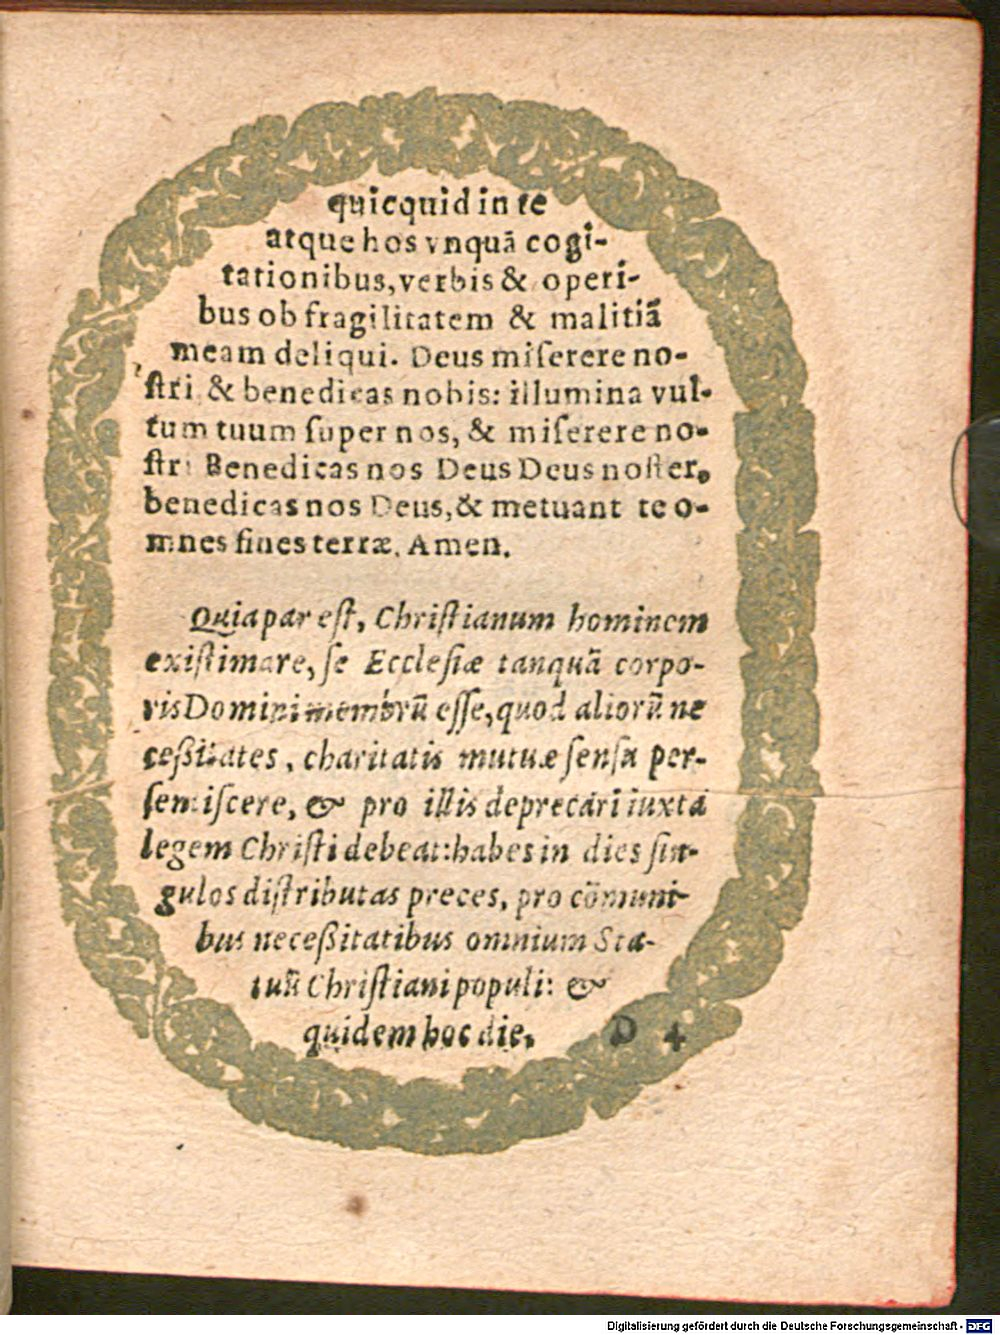 quicquid in te
atque hos vnquā cogi-
tationibus, verbis & operi-
bus ob fragilitatem & malitiā
meam deliqui. Deus miserere no-
stri & benedicas nobis: illumina vul-
tum tuum super nos, & miserere no-
stri Benedicas nos Deus Deus noster,
benedicas nos Deus, & metuant te o-
mnes fines terræ. Amen.
Quia par est, Christianum hominem
existimare, se Ecclesiæ tanquā corpo-
ris Domini membrū esse, quod aliorū ne
ceßitates, charitatis mutuæ sensu per-
sentiscere, & pro illis deprecari iuxta
legem Christi debeat: habes in dies sin-
gulos distributas preces, pro cōmuni-
bus neceßitatibus omnium Sta-
tuū Christiani populi: &
quidem hoc die,
D 4
Digitalisierung gefördert durch die Deutsche Forschungsgemeinschaft - DFG